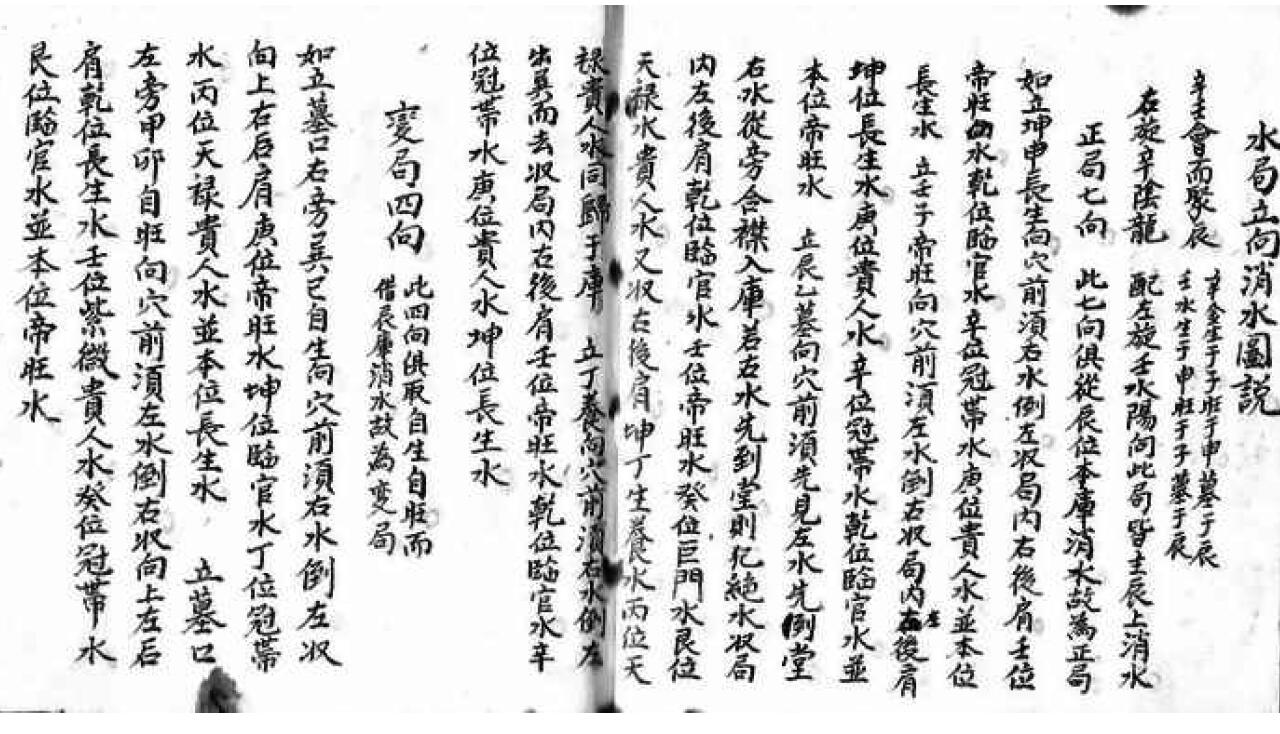 水局立向消水圖說
辛壬會而聚辰
辛金生于子旺于申墓于辰
壬水生于申旺于子墓于辰
右旋辛陰龍 配左旋壬水陽向此局皆主辰上消水
正局七向 此七向俱從辰位本庫消水故為正局
如立坤申長生向穴前須右水倒左収局內右後肩壬位
帝旺水乾位臨官水辛位冠帶水庚位貴人水並本位
長生水 立壬子帝旺向穴前須左水倒右収局內左後肩
坤位長生水庚位貴人水辛位冠帶水乾位臨官水並
本位帝旺水 立辰乙墓向穴前須先見左水先倒堂
右水從旁合襟入庫若右水先到堂則犯絕水収局
內左後肩乾位臨官水壬位帝旺水癸位巨門水艮位
天祿水貴人水又収右後肩坤丁生養水丙位天
祿貴人水同歸于庫 立丁養向穴前須右水倒左
出巽而去収局內右後肩壬位帝旺水乾位臨官水辛
位冠帶水庚位貴人水坤位長生水
變局四向
此四向俱取自生自旺而
借辰庫消水故為変局
如立墓口右旁巽巳自生向穴前須右水倒左収
向上右后肩庚位帝旺水坤位臨官水丁位冠帶
水丙位天祿貴人水並本位長生水 立墓口
左旁甲卯自旺向穴前須左水倒右収向上左后
肩乾位長生水壬位紫微貴人水癸位冠帶水
艮位臨官水並本位帝旺水